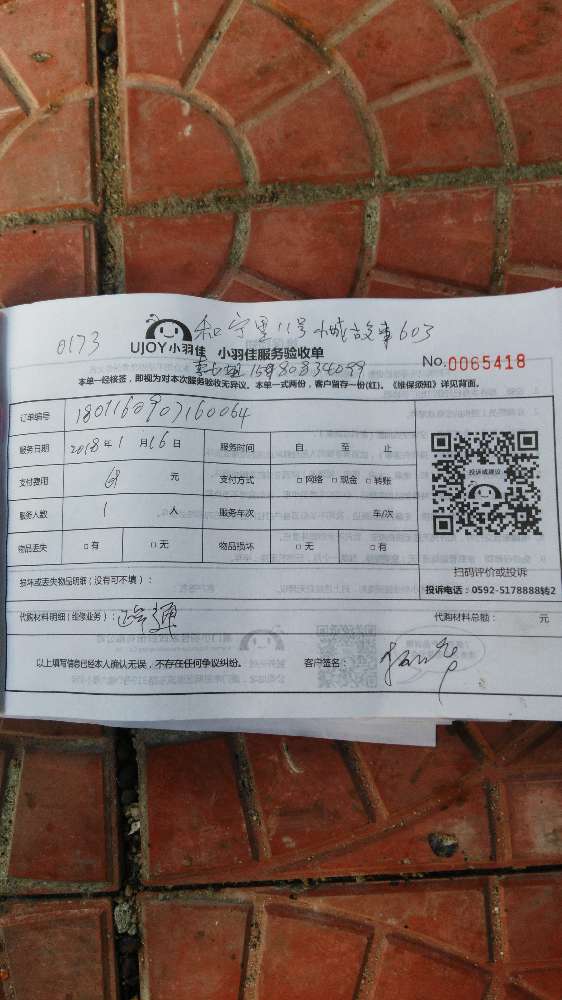 0173 和宁里11号小城故事603
UJOY小羽佳 小羽佳服务验收单
No.0065418
本单一经核签，即视为对本次服务验收无异议。本单一式两份，客户留存一份(红)。《维保须知》详见背面。
订单编号 1801160907160064
服务日期 2018年1月16日 服务时间 自 至 止
支付费用 元 支付方式 □网络 □现金 □转账
服务人数 1 人 服务车次 车/次
物品丢失 □有 □无 物品损坏 □无 □有
投诉或建议
扫码评价或投诉
投诉电话：0592-5178888转2
损坏或丢失物品明细（没有可不填）：
代购材料明细（维修业务）： 代购材料总额： 元
以上填写信息已经本人确认无误，不存在任何争议纠纷。 客户签名：